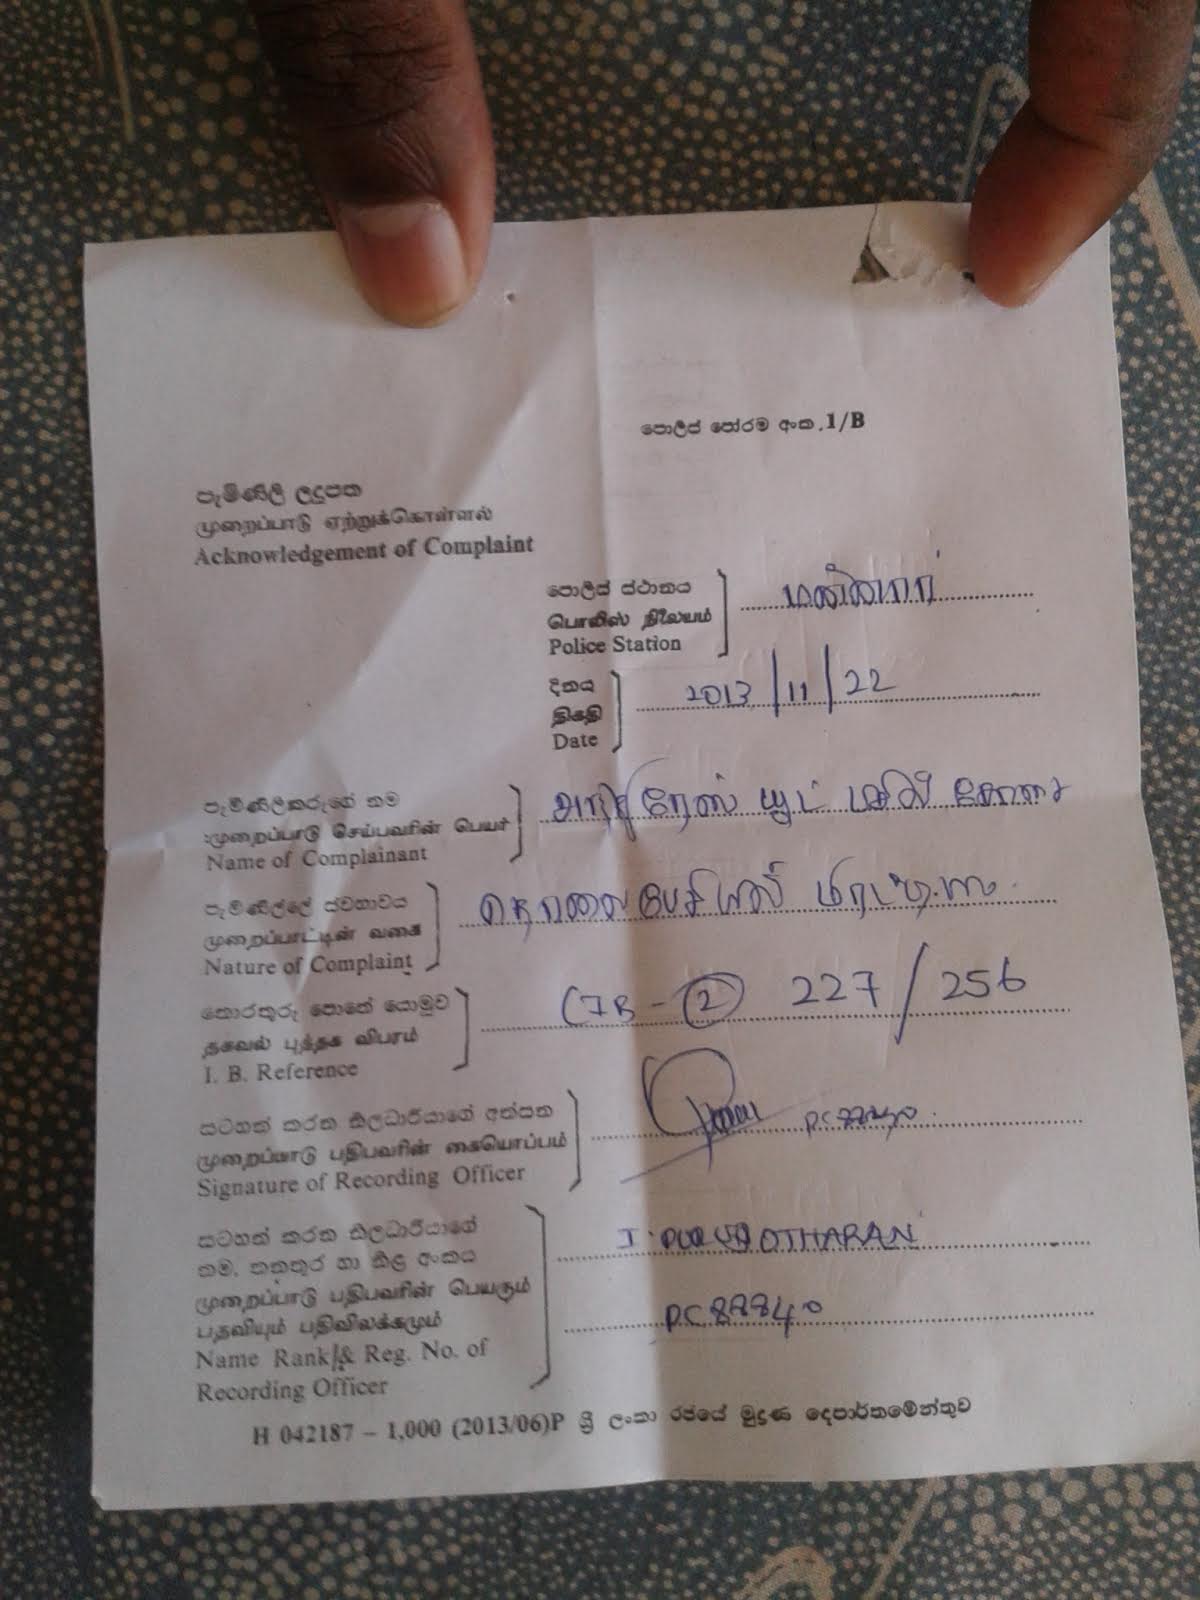 පොලිස් පෝරම අංක. 1/B
පැමිණිලි ලදුපත
முறைப்பாடு ஏற்றுக்கொள்ளல்
Acknowledgement of Complaint
පොලිස් ස්ථානය
பொலிஸ் நிலையம்
Police Station
மன்னார்
දිනය
திகதி
Date
2013/11/22
පැමිණිලිකරුගේ නම
முறைப்பாடு செய்பவரின் பெயர்
Name of Complainant
පැමිණිල්ලේ ස්වභාවය
முறைப்பாட்டின் வகை
Nature of Complaint
தொலைபேசியில்
තොරතුරු පොතේ යොමුව
தகவல் புத்தக விபரம்
I. B. Reference
227/256
සටහන් කරන නිලධාරියාගේ අත්සන
முறைப்பாடு பதிபவரின் கையொப்பம்
Signature of Recording Officer
සටහන් කරන නිලධාරියාගේ
නම, තනතුර හා නිල අංකය
முறைப்பாடு பதிபவரின் பெயரும்
பதவியும் பதிவிலக்கமும்
Name Rank & Reg. No. of
Recording Officer
PC 88840
H 042187 – 1,000 (2013/06)P ශ්‍රී ලංකා රජයේ මුද්‍රණ දෙපාර්තමේන්තුව